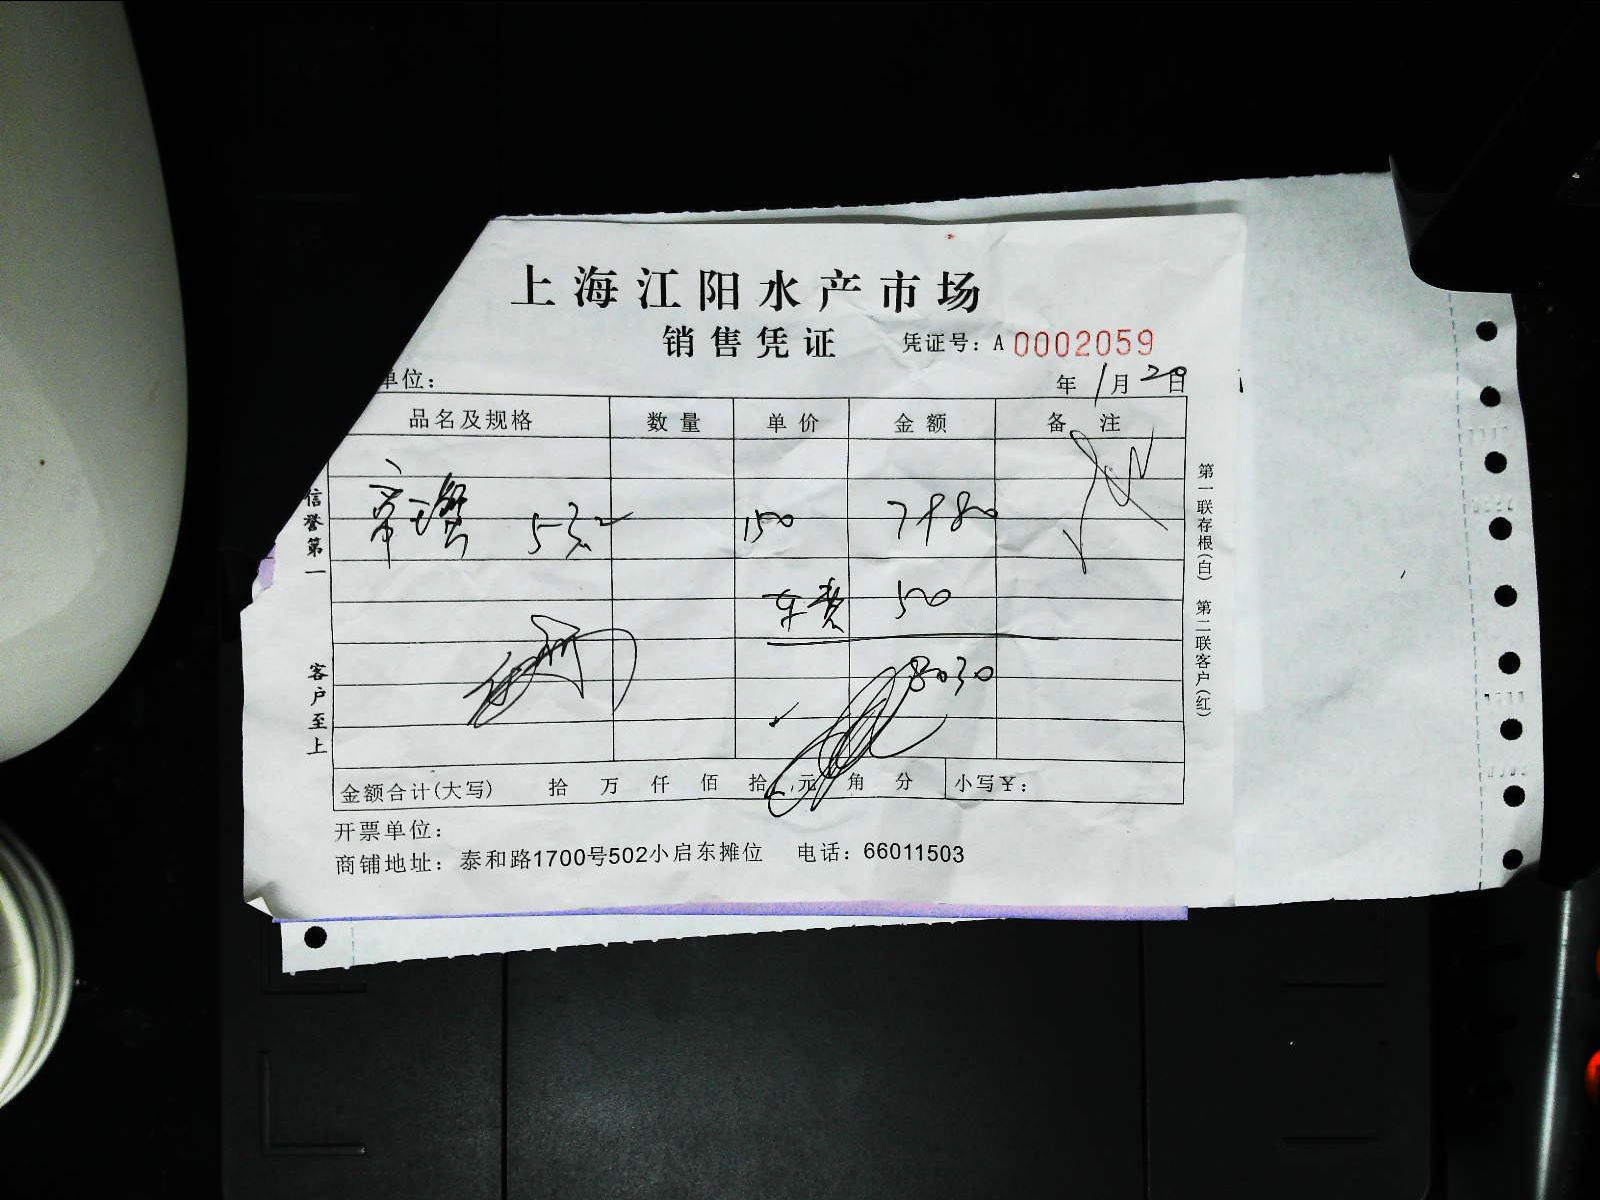 上海江阳水产市场
销售凭证 凭证号：A 0002059
单位： 年 1 月 20 日
品名及规格 数量 单价 金额 备注
150 7980
车费 50
8030
金额合计(大写) 拾 万 仟 佰 拾 元 角 分 小写￥：
开票单位：
商铺地址：泰和路1700号502小启东摊位 电话：66011503
信誉第一
客户至上
第一联存根(白) 第二联客户(红)